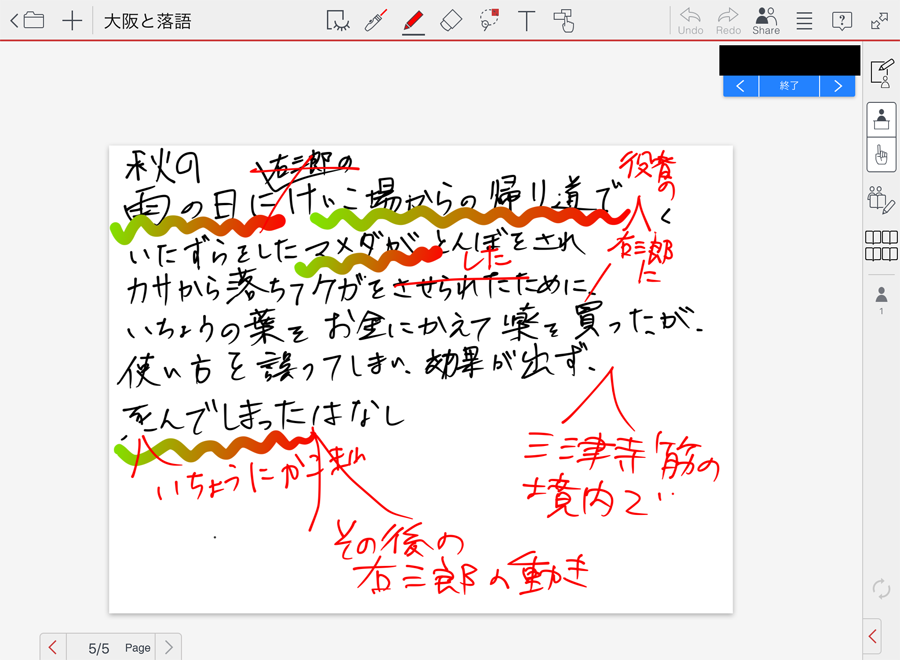 大阪と落語
Undo
Redo
Share
終了
秋の
右三郎の
雨の日にけいこ場からの帰り道で
役者の
右三郎
に
いたずらをしたマメダがとんぼをされ
した
カサから落ちてケガをさせられたために、
いちょうの葉をお金にかえて薬を買ったが、
使い方を誤ってしまい、効果が出ず、
死んでしまったはなし
三津寺筋の
境内で
いちょうにかこまれ
その後の
右三郎の動き
1
5/5 Page